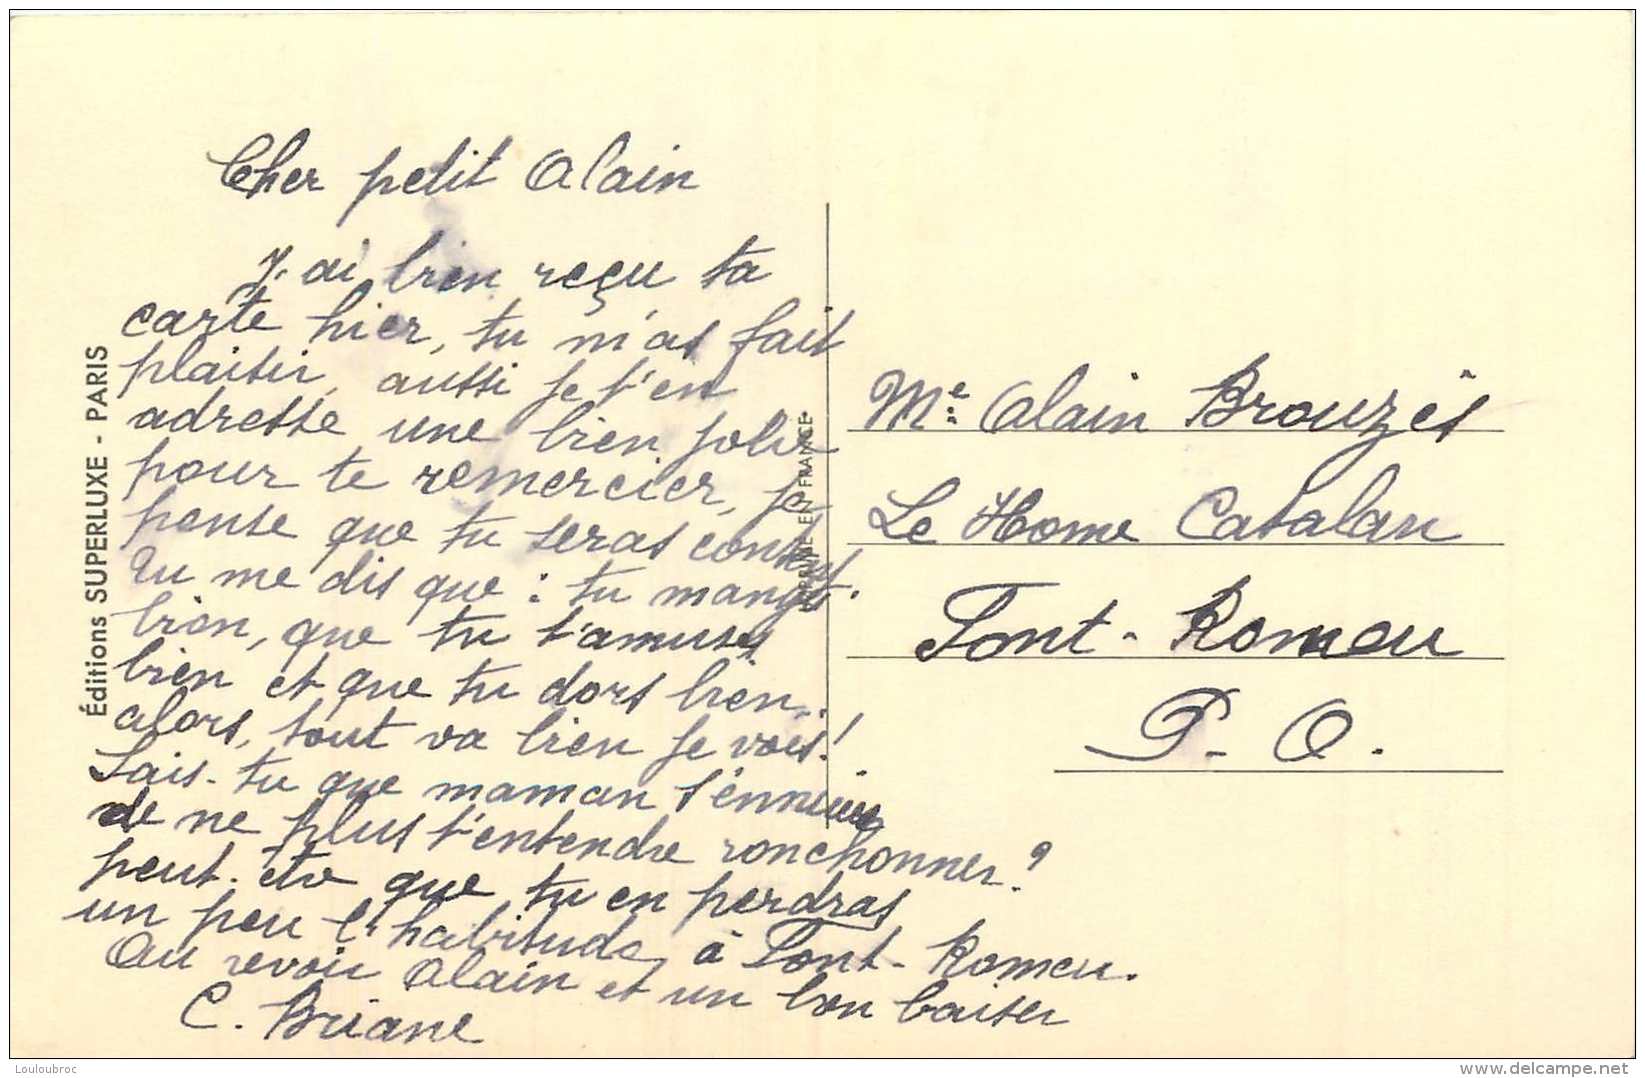 Cher petit Alain
J'ai bien reçu ta
carte hier, tu m'as fait
plaisir, aussi je t'en
adresse une bien jolie
pour te remercier, je
pense que tu seras content
Tu me dis que : tu manges
bien, que tu t'amuses
bien et que tu dors bien.
alors, tout va bien je vois!
Sais-tu que maman s'ennuie
de ne plus t'entendre ronchonner?
peut-être que tu en perdras
un peu l'habitude, à Font-Romeu.
Au revoir Alain et un bon baiser
C. Briane
Éditions SUPERLUXE - PARIS
IMPRIMÉ EN FRANCE
Mr. Alain Brouzès
Le Home Catalan
Font-Romeu
P-O.
Louloubroc
delcampe.net